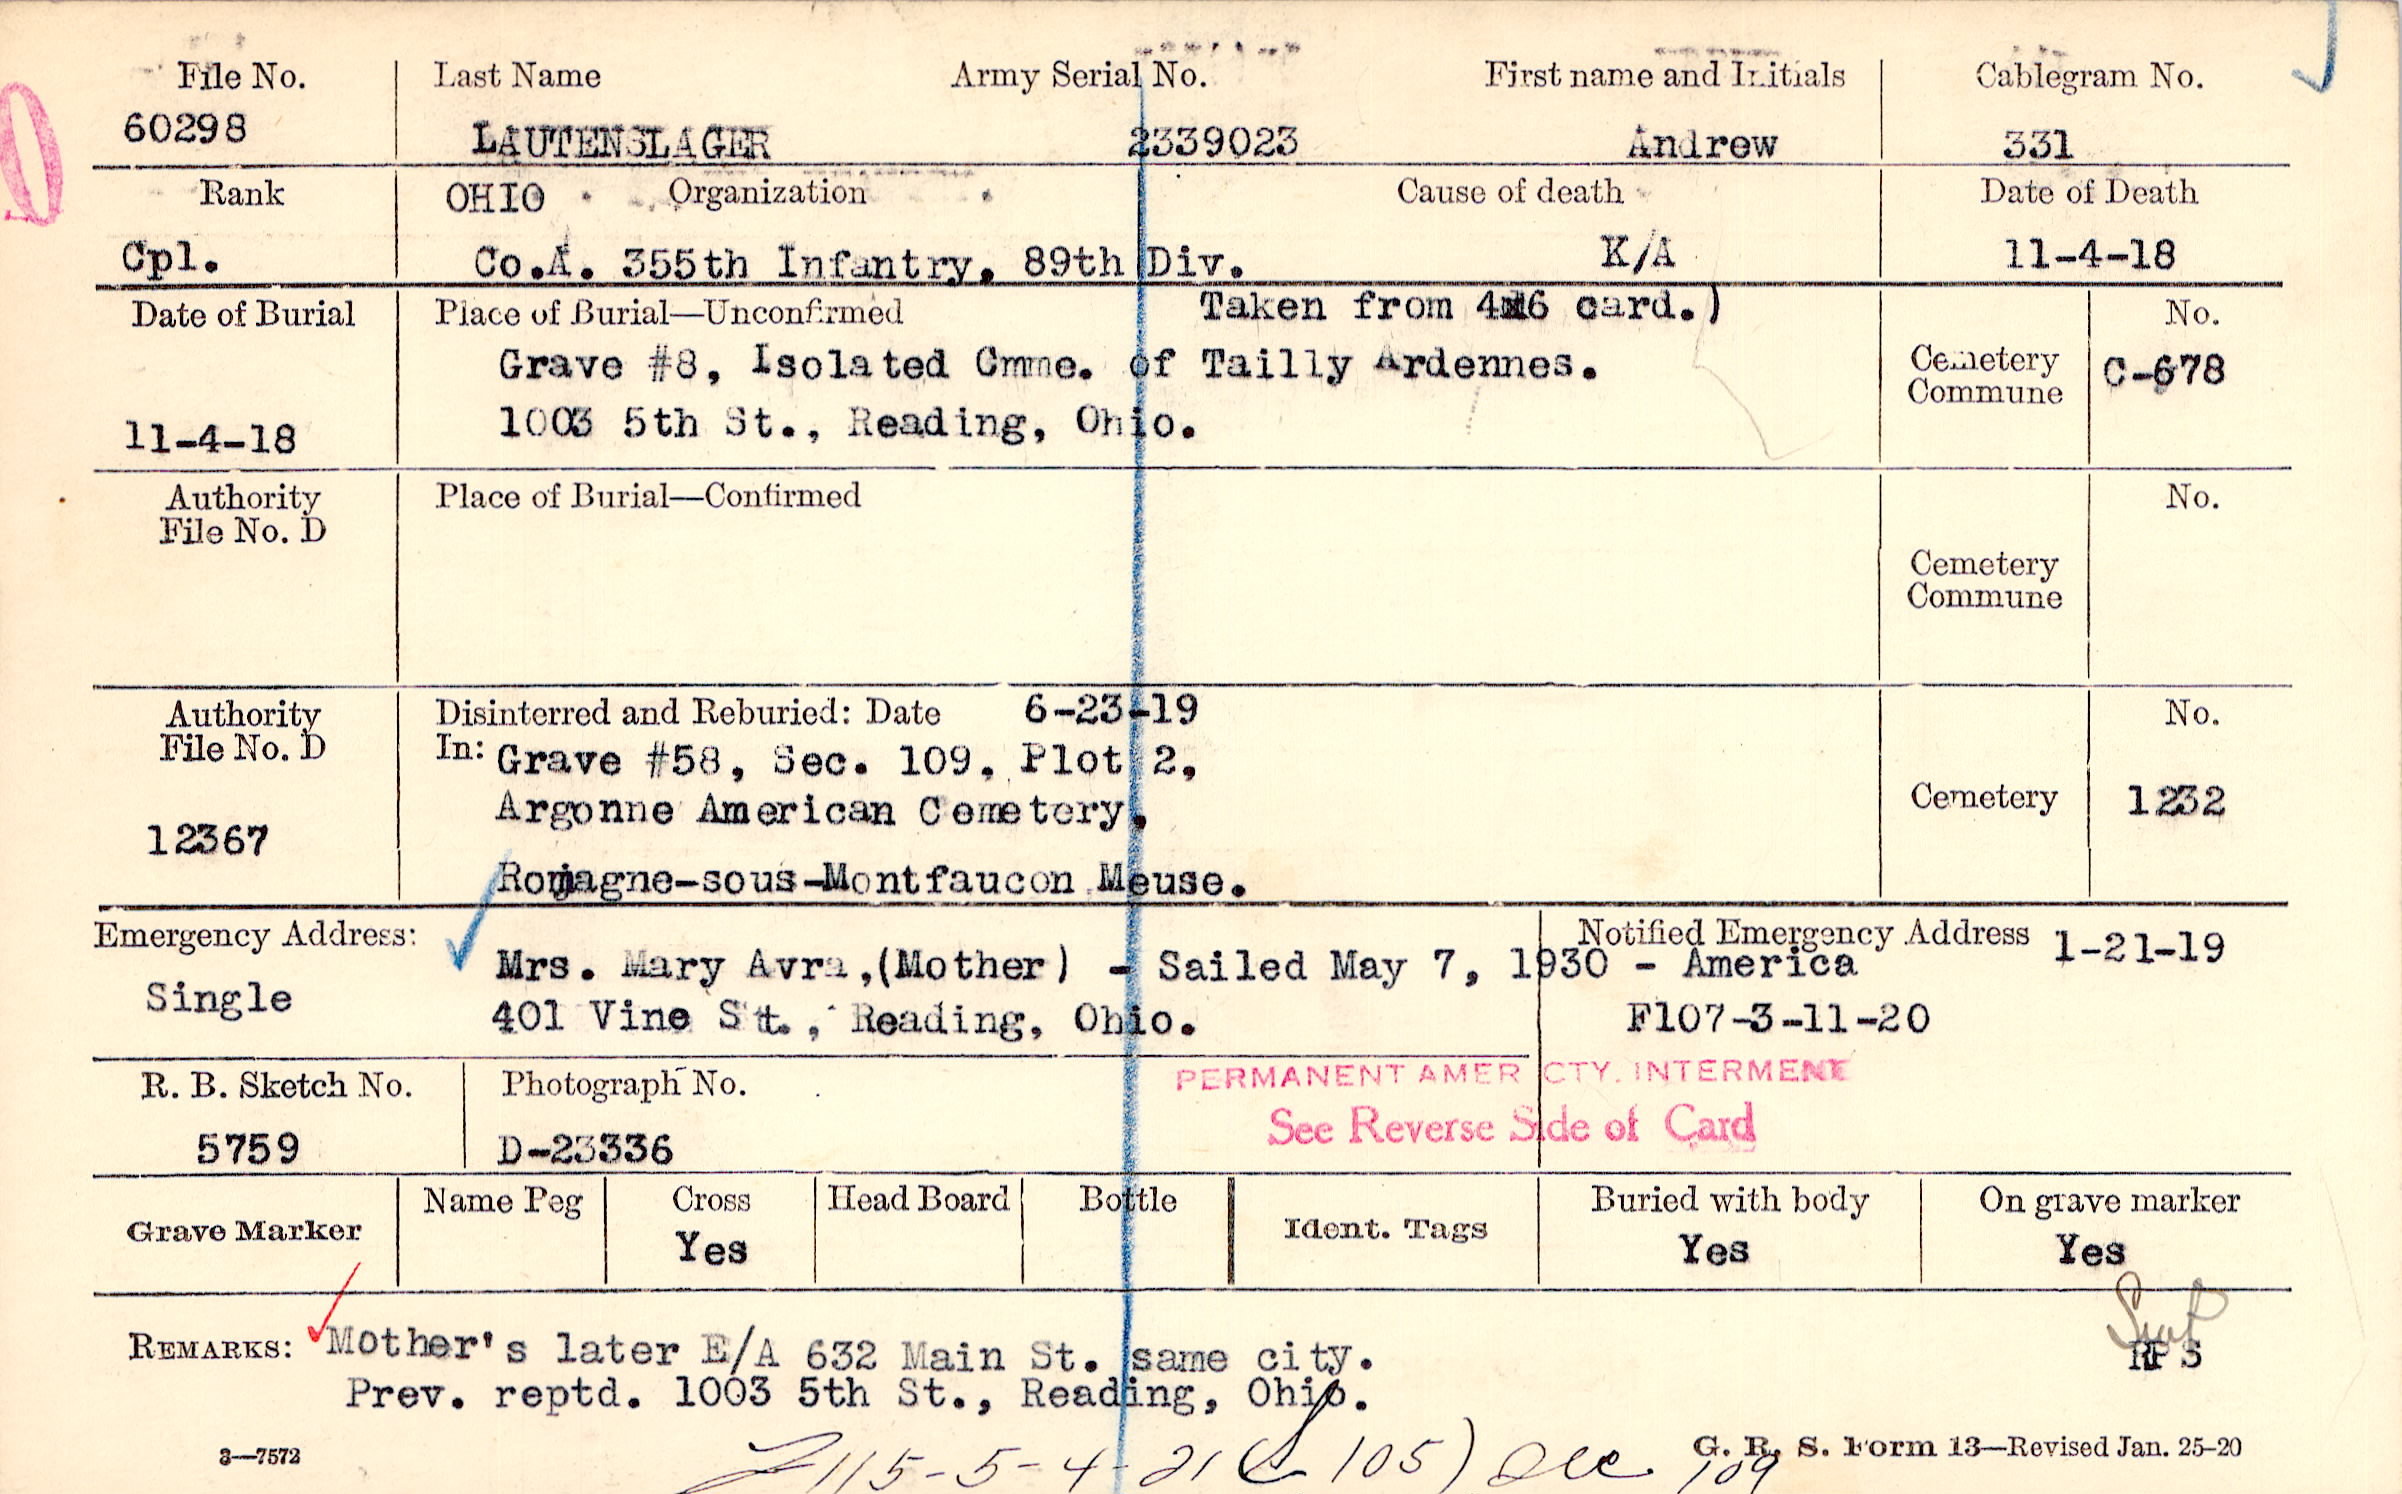 File No. Last Name Army Serial No. First name and Initials Cablegram No.
60298 LAUTENSLAGER 2339023 Andrew 331
Rank OHIO Organization Cause of death Date of Death
Cpl. Co.A. 355th Infantry, 89th Div. K/A 11-4-18
Date of Burial Place of Burial—Unconfirmed Taken from 4x6 card.) No.
Grave #8, Isolated Cmme. of Tailly Ardennes. Cemetery Commune C-678
11-4-18 1003 5th St., Reading, Ohio.
Authority File No. D Place of Burial—Confirmed No.
Cemetery Commune
Authority File No. D Disinterred and Reburied: Date 6-23-19 No.
In: Grave #58, Sec. 109, Plot 2,
Argonne American Cemetery, Cemetery 1232
12367
Romagne-sous-Montfaucon Meuse.
Emergency Address: Notified Emergency Address 1-21-19
Mrs. Mary Avra,(Mother) - Sailed May 7, 1930 - America
Single 401 Vine St., Reading, Ohio. F107-3-11-20
R. B. Sketch No. Photograph No. PERMANENT AMER CTY. INTERMENT
See Reverse Side of Card
5759 D-23336
Grave Marker Name Peg Cross Head Board Bottle Ident. Tags Buried with body On grave marker
Yes Yes Yes
REMARKS: Mother's later E/A 632 Main St. same city. RPS
Prev. reptd. 1003 5th St., Reading, Ohio.
3—7572 G. R. S. Form 13—Revised Jan. 25-20
115-5-4-21 105) 109